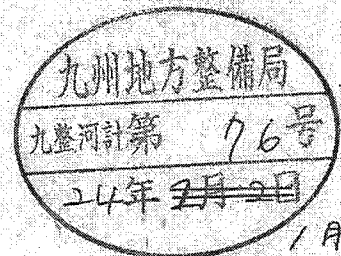 九州地方整備局
九整河計第 76号
24年 2月 2日
1月